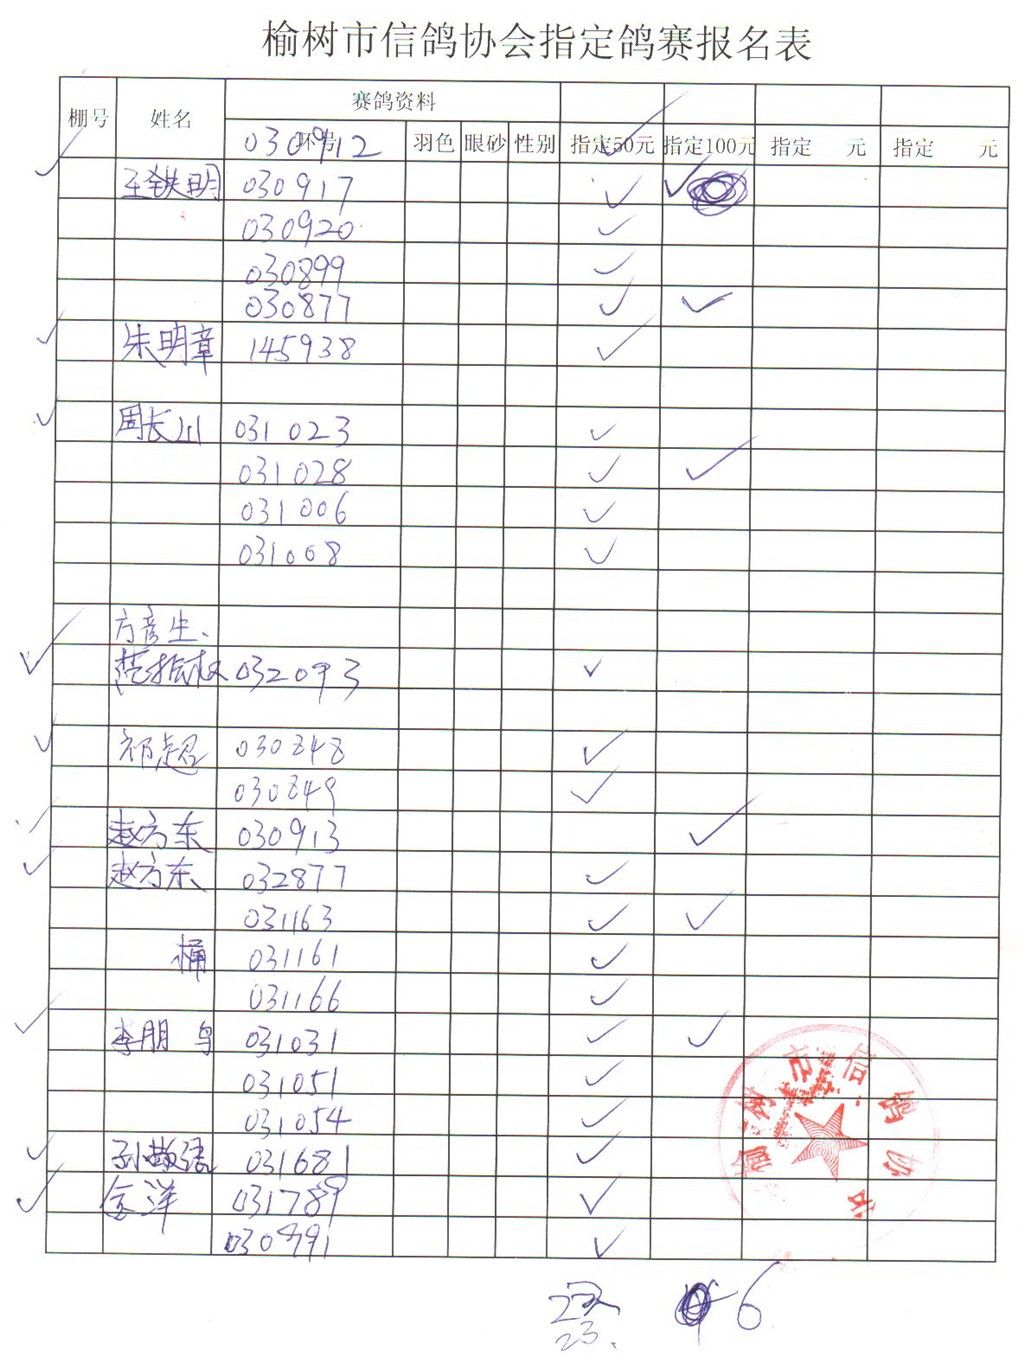 榆树市信鸽协会指定鸽赛报名表
棚号 姓名 赛鸽资料
环号 羽色 眼砂 性别 指定50元 指定100元 指定 元 指定 元
030912 ✓
✓ 王铁明 030917 ✓ ✓
030920 ✓
030899 ✓
030877 ✓ ✓
✓ 朱明章 145938 ✓
✓ 周长川 031023 ✓
031028 ✓ ✓
031006 ✓
031008 ✓
方彦生、
✓ 范振权 032093 ✓
✓ 祁超 030848 ✓
030849 ✓
✓ 赵方东 030913 ✓
✓ 赵方东 032877 ✓
031163 ✓ ✓
桶 031161 ✓
031166 ✓
✓ 李朋鸟 031031 ✓ ✓
031051 ✓
031054 ✓
✓ 孙 031681 ✓
✓ 金洋 031789 ✓
030991 ✓
榆树市信鸽协会
6
23.